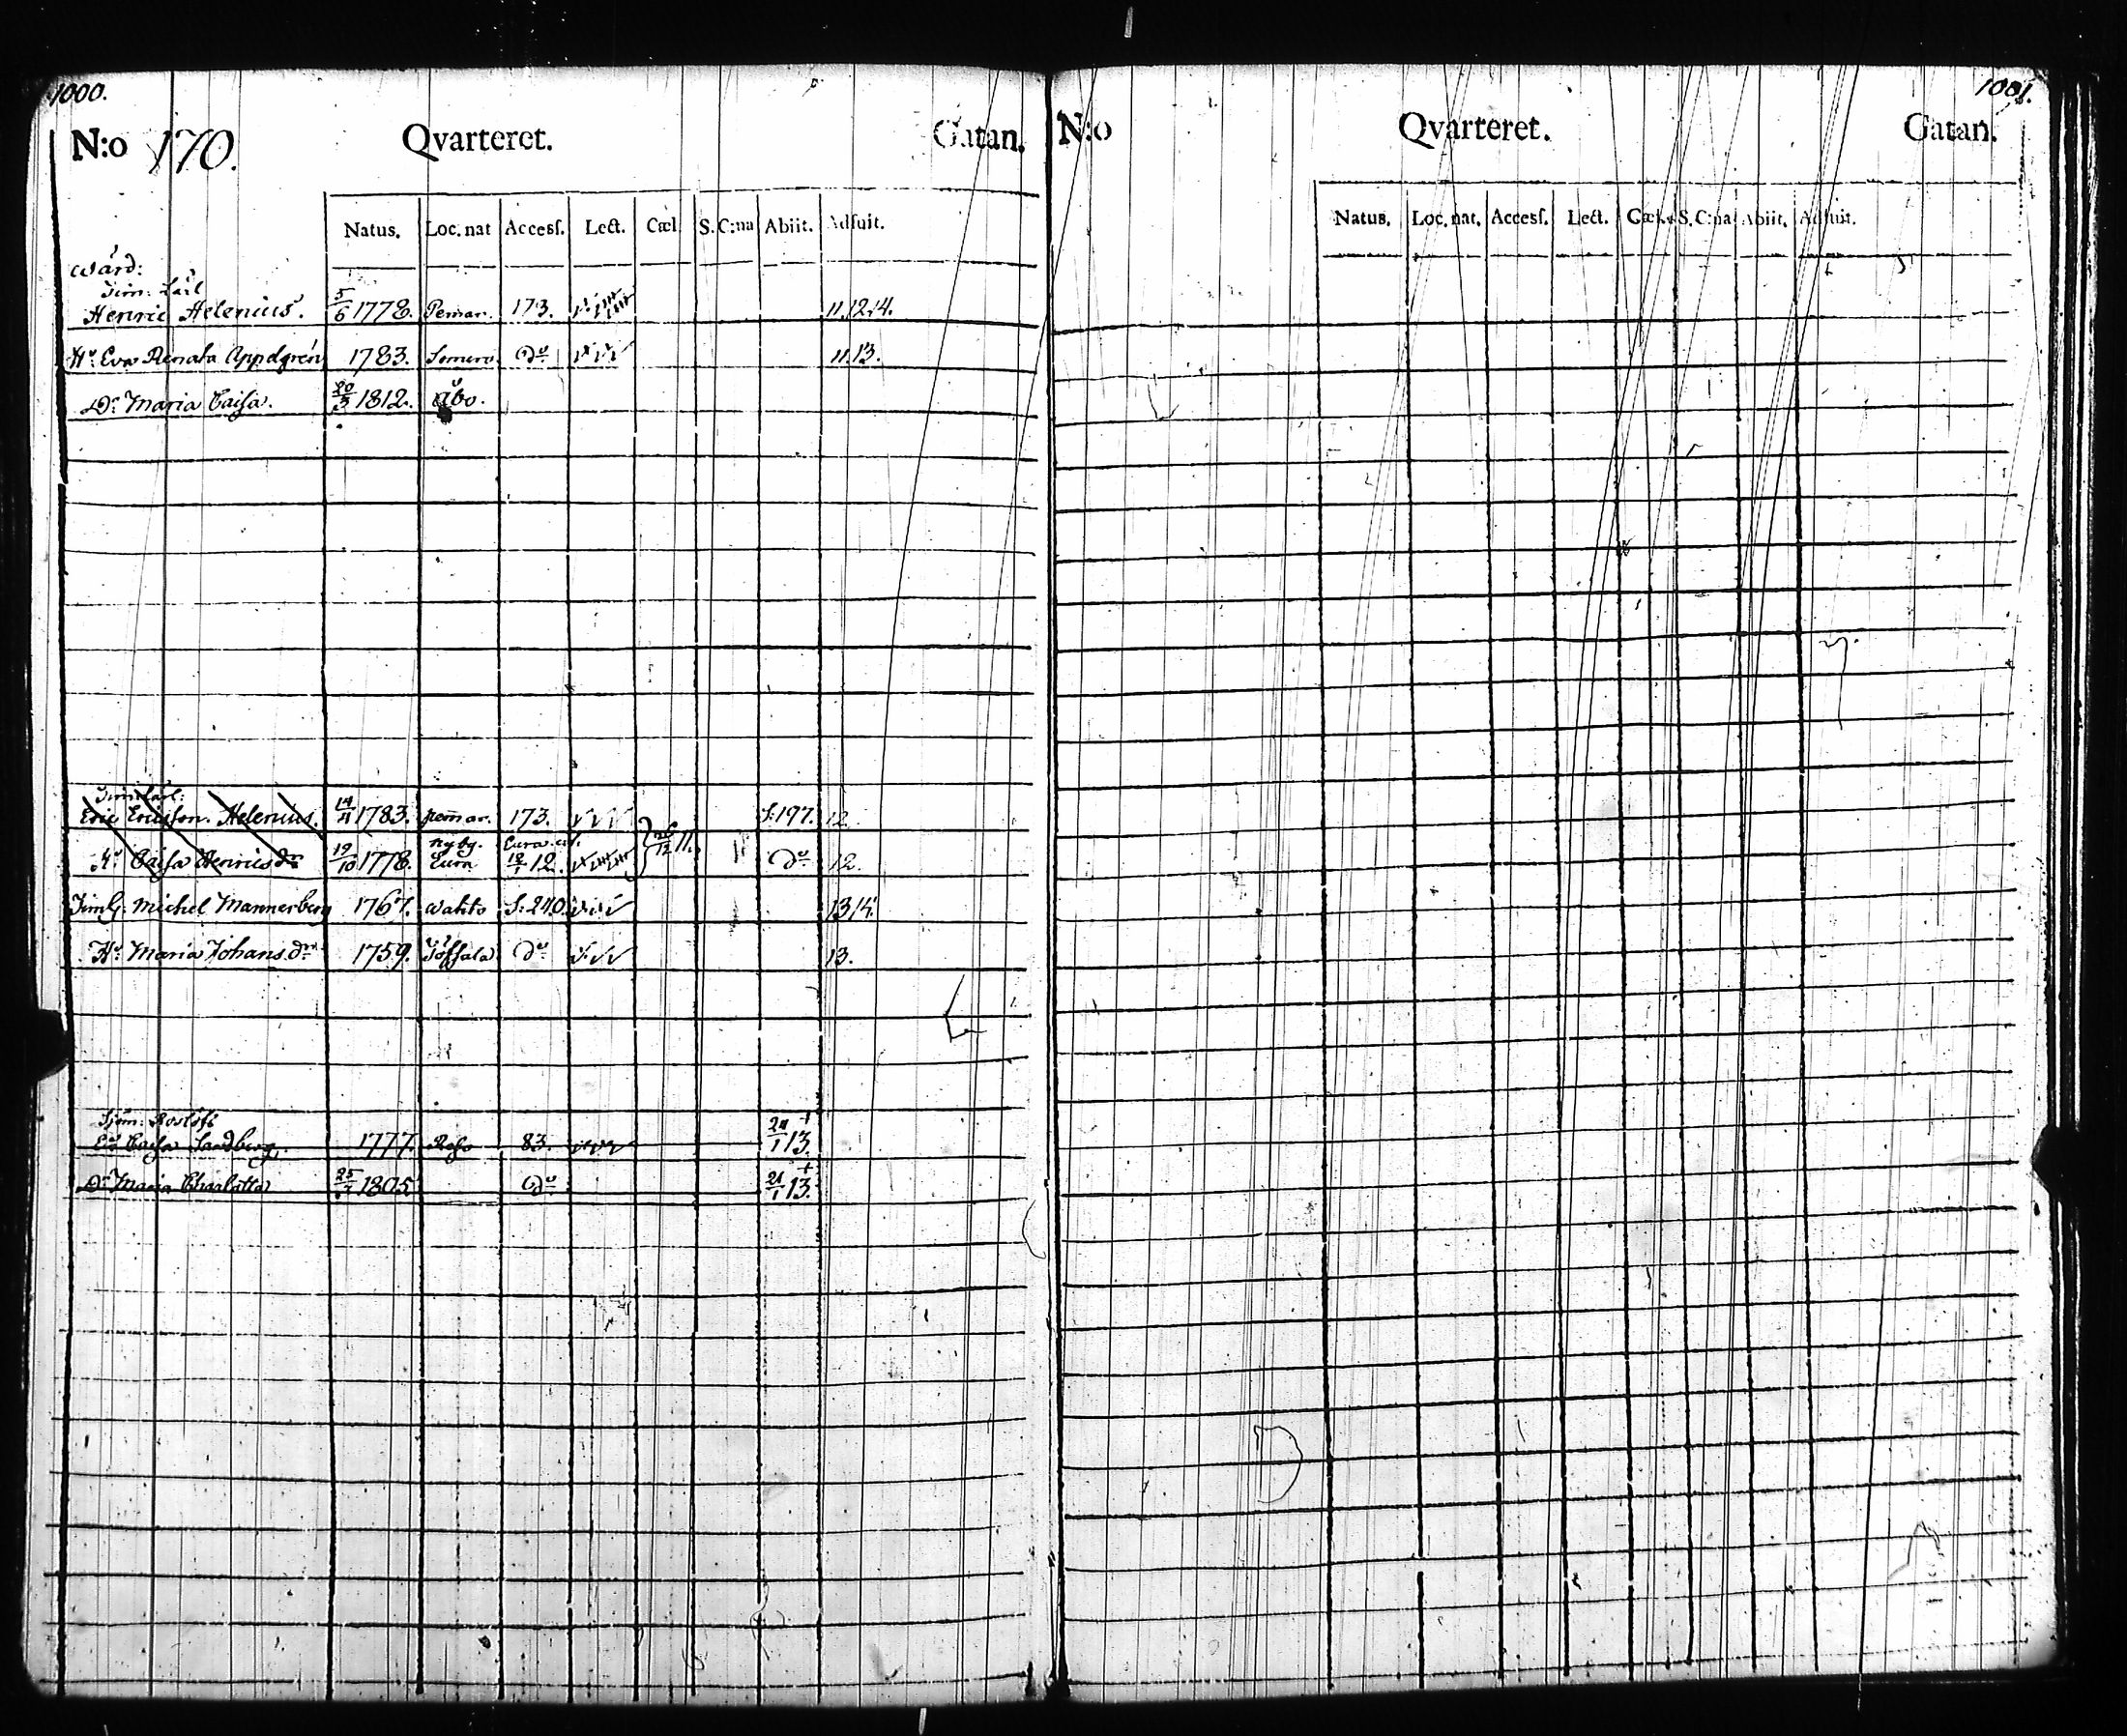 1000.
N:o 170. Qvarteret. Gatan.
Natus. Loc. nat Accesſ. Lect. Cœl S. C:na Abiit. Adfuit.
Wärd:
Tim: Kärl
Henric Helenius. 5/6 1778. Pemar. 173. 11.12.14.
Hu Eva Renata Uppdgrén 1783. Somero. Do 11.13.
Dr Maria Caisa. 20/3 1812. Åbo.
Eric Ericsson Helenius. 14/4 1783. pemar. 173. S:197. 12.
nyby. Eura
Hu Caisa Henricsdr 19/10 1778. Eura 12/1 12. 26/12 11. Do 12.
TimG: Michel Mannerberg 1767. Wahto S:240. 13 14.
Hu Maria Johans.dr 1759. Töffsala Do 13.
Sjöm: Roslöfs
Ea Caisa Sandberg. 1777. 83. 24/1 13. +
Dr Maria Charlotta 1805 Do 21/1 13. +
1001.
N:o Qvarteret. Gatan.
Natus. Loc. nat. Accesſ. Lect. Cœl. S.C:na Abiit. Adfuit.